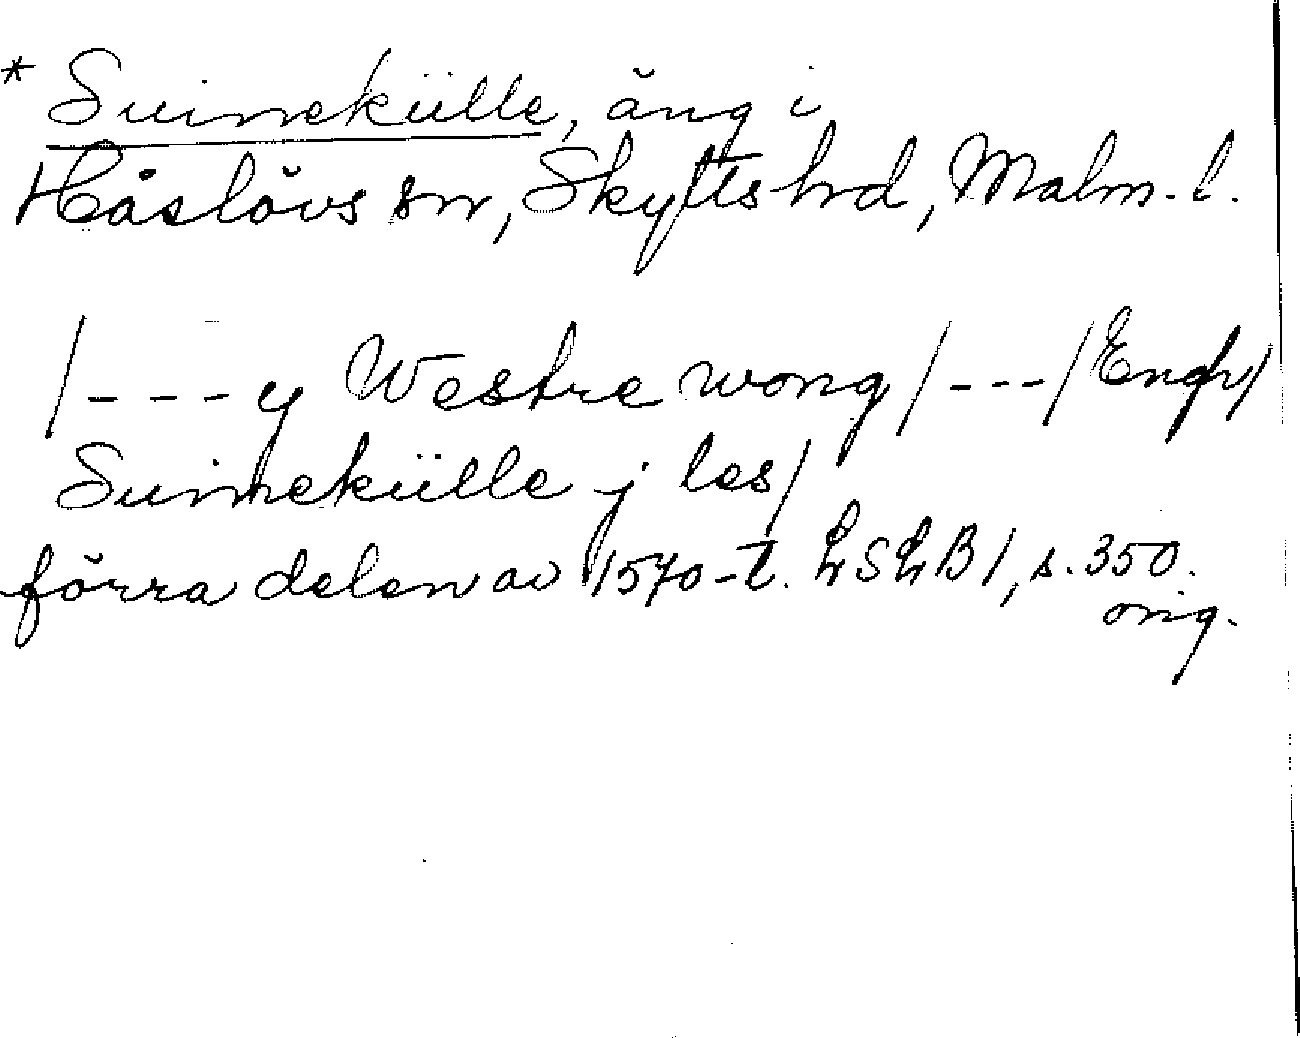 * Suinekülle, äng i
Håslövs sn, Skytts hd, Malm. l.
/--- y Westre wong /---/ Engh/
Suinekülle j les/
förra delen av 1570-t. LSLB 1, s. 350.
orig.